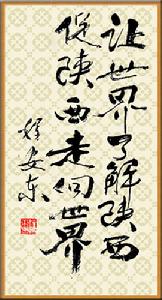 让世界了解陕西
促陕西走向世界
程安东